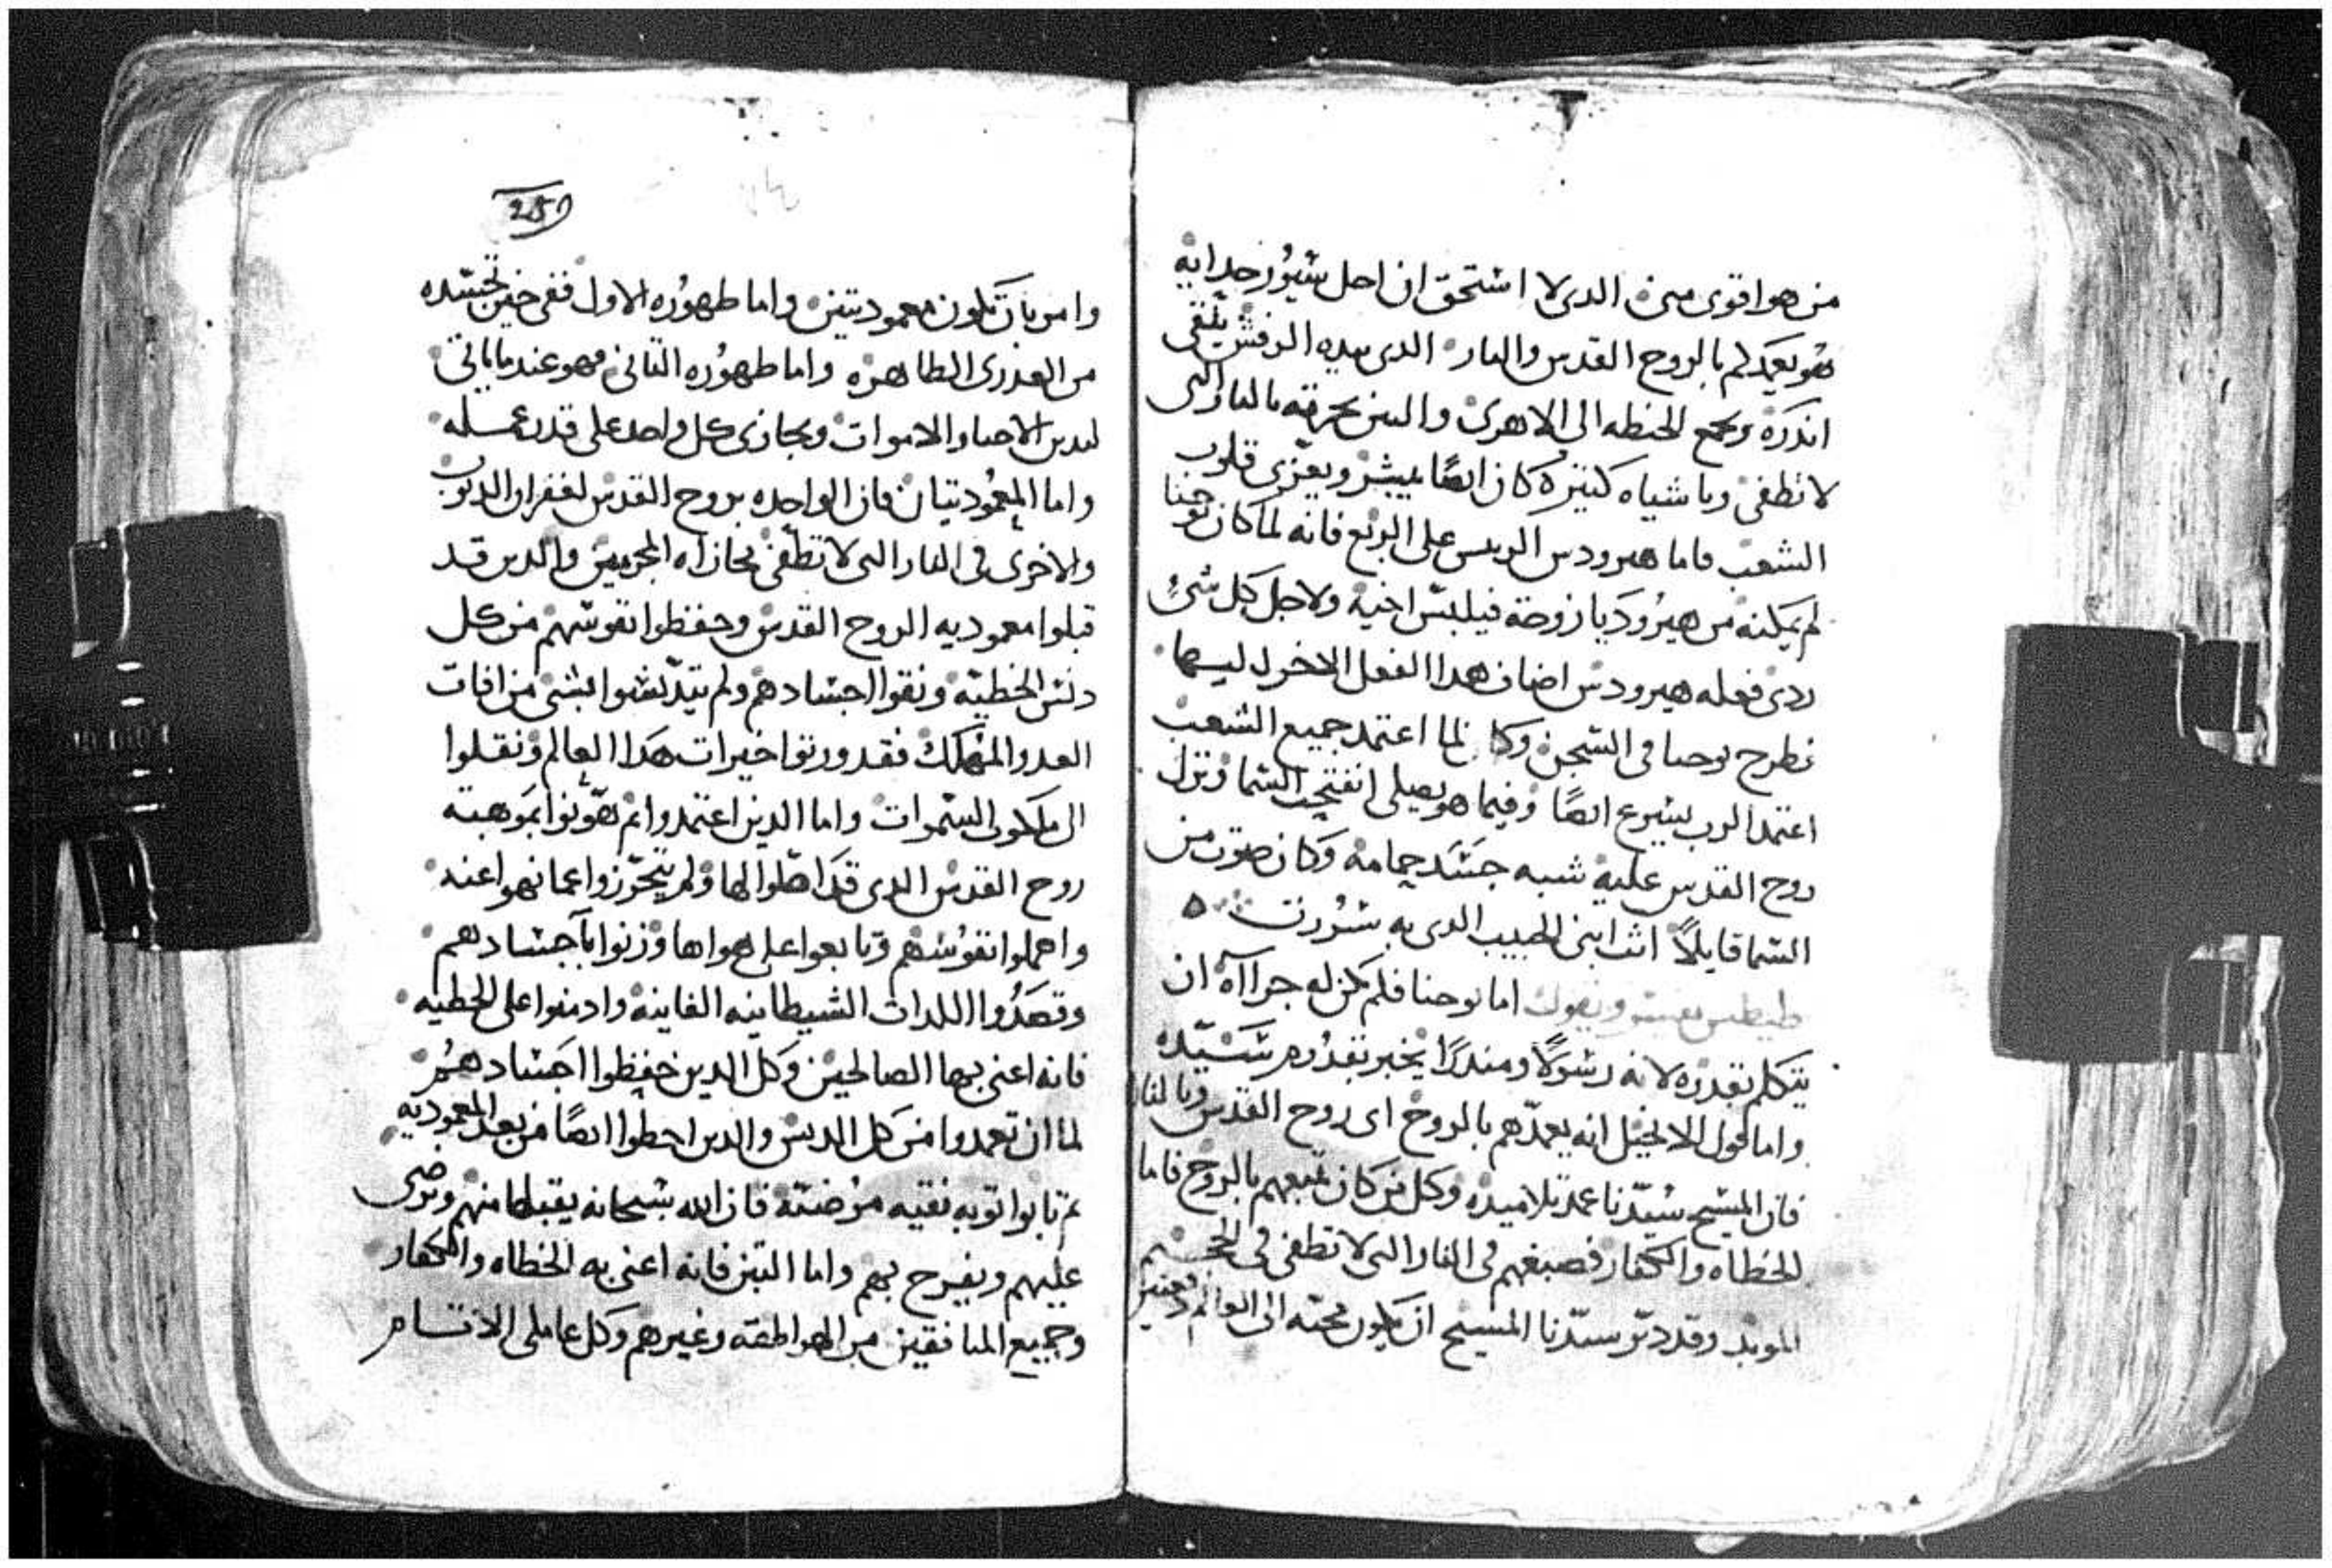 من هو اقوى منى الدى لا استحق ان احل سيور حدايه
هو يعمدكم بالروح القدس والنار الدى بيده الرفش ينقى
اندره ويجمع الحنطه الى الاهرى والتبن يحرقه بالنار التى
لا تطفى وباشياه كتيره كان ايضا يبشر ويعزى قلوب
الشعب فاما هيرودس الريس على الربع فانه لما كان يوحنا
لم يمكنه من هيروديا زوجة فيلبس اخيه ولاجل كل شئ
ردى فعله هيرودس اضاف هدا الفعل الاخر ليسها
فطرح يوحنا فى السجن وكا لما اعتمد جميع الشعب
اعتمد الرب يسوع ايضا وفيما هو يصلى انفتحت السما ونزل
روح القدس عليه شبه جسد حمامه وكان صوت من
السما قايلا انت ابنى الحبيب الدى به سررت
طيطس يفسر ويقول اما يوحنا فلم تكن له جراآه ان
يتكلم بقدره لانه رسولا ومندرا يخبر بقدره سيده
واما قول الانجيل انه يعمدهم بالروح اى روح القدس وبالنار
فان المسيح سيدنا عمد تلاميده وكل من كان تبعهم بالروح فاما
الخطاه والكفار فصبغهم فى النار التى لا تطفى فى الجحيم
الموبد وقد دبر سيدنا المسيح ان يكون مجيه الى العالم دفعتين
251
وامر بان تكون معموديتين واما طهوره الاول ففى حين تجسده
من العدرى الطاهره واما طهوره التانى فهو عند ما ياتى
ليدين الاحيا والاموات ويجازى كل واحد على قدر عمله
واما المعموديتان فان الواحده بروح القدس لغفران الدنوب
والاخرى فى النار التى لا تطفى مجازاه المجرمين والدين قد
قبلوا معموديه الروح القدس وحفظوا نفوسهم من كل
دنس الخطيه ونقوا اجسادهم ولم يتدنسوا بشى من افات
العدو المهلك فقد ورتوا خيرات هدا العالم ونقلوا
الى ملكوت السموات واما الدين اعتمدوا تم تهونوا بموهبة
روح القدس الدى قد اهلوا لها ولم يتحرزوا عما نهوا عنه
واهملوا نفوسهم وتابعوا على هواها وزنوا باجسادهم
وقصدوا اللدات الشيطانيه الفانيه وادمنوا على الخطيه
فانه اعنى بها الصالحين وكل الدين حفظوا اجسادهم
لما ان تعمدوا من كل الدنس والدين اخطوا ايضا من بعد المعموديه
تم تابوا توبه نقيه مرضيه فان الله سبحانه يقبلها منهم ويرضى
عليهم ويفرح بهم واما التبن فانه اعنى به الخطاه والكفار
وجميع المنافقين من الهراطقه وغيرهم وكل عاملى الاتام